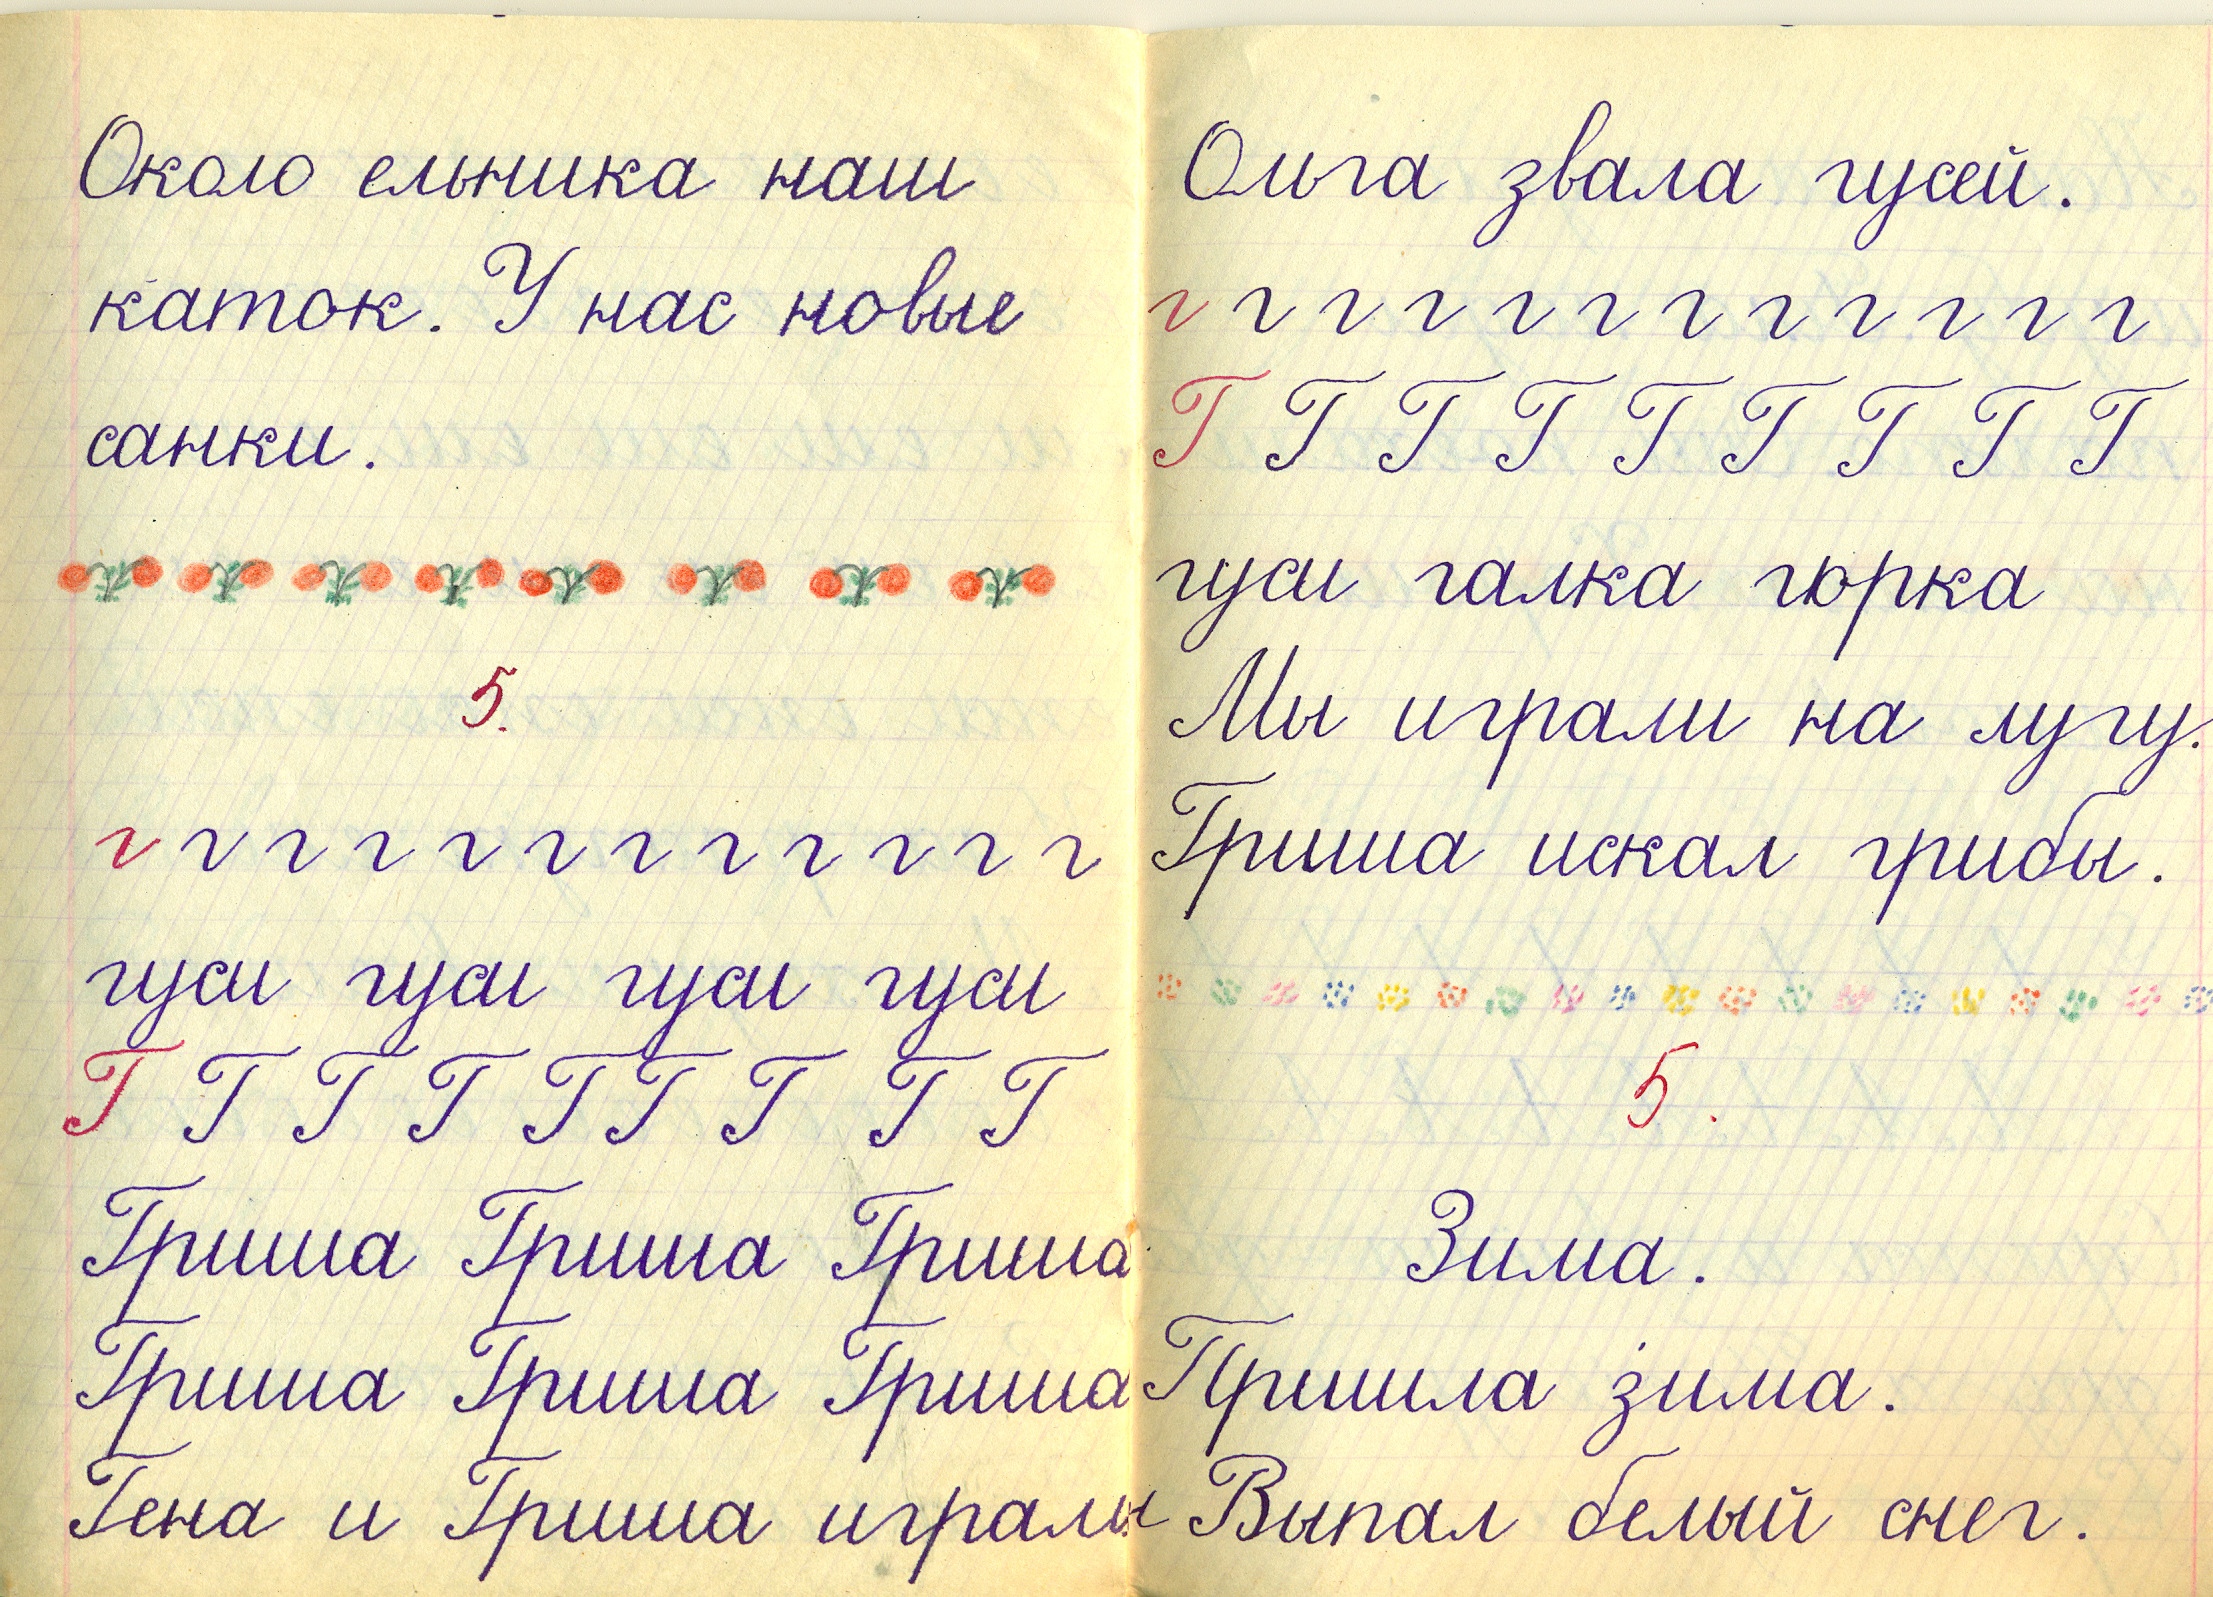 Около ельника наш
каток. У нас новые
санки.
5.
г г г г г г г г г г г г
гуси гуси гуси гуси
Г Г Г Г Г Г Г Г Г
Гриша Гриша Гриша
Гриша Гриша Гриша
Гена и Гриша играли
Ольга звала гусей.
г г г г г г г г г г г г
Г Г Г Г Г Г Г Г Г
гуси галка горка
Мы играли на лугу.
Гриша искал грибы.
5.
Зима.
Пришла зима.
Выпал белый снег.